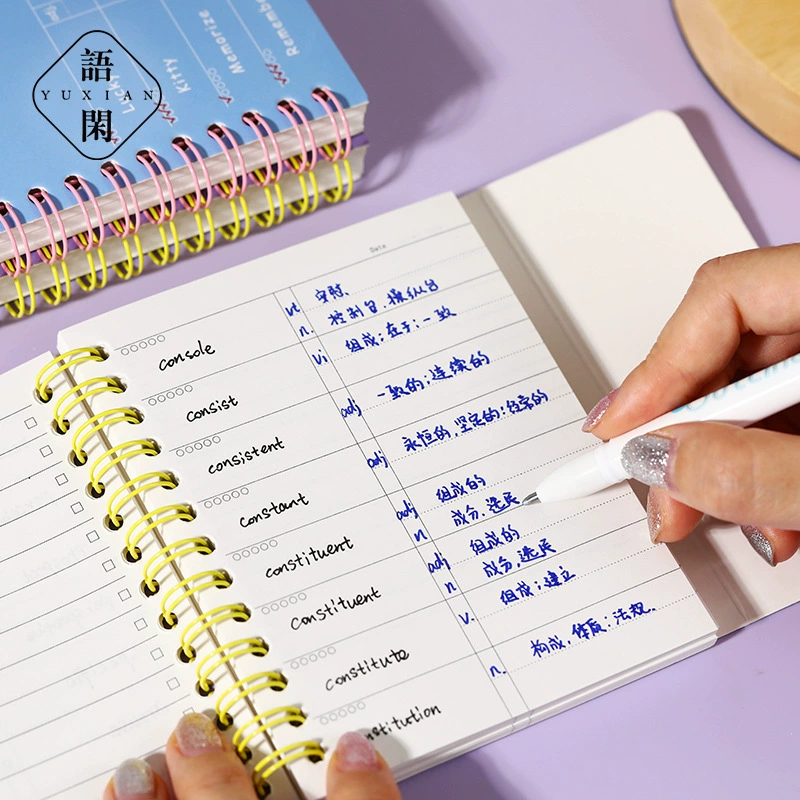 語
YUXIAN
閑
Remember
Memorize
Kitty
Lucky
Date.
console
vt 安慰
n. 控制台、操纵台
consist
vi 组成；在于；一致
consistent
adj 一致的；连续的
constant
adj 永恒的，坚定的；经常的
constituent
adj 组成的
n 成分，选民
constituent
adj 组成的
n 成分，选民
constitute
v. 组成；建立
nstitution
n. 构成，体质；法规.